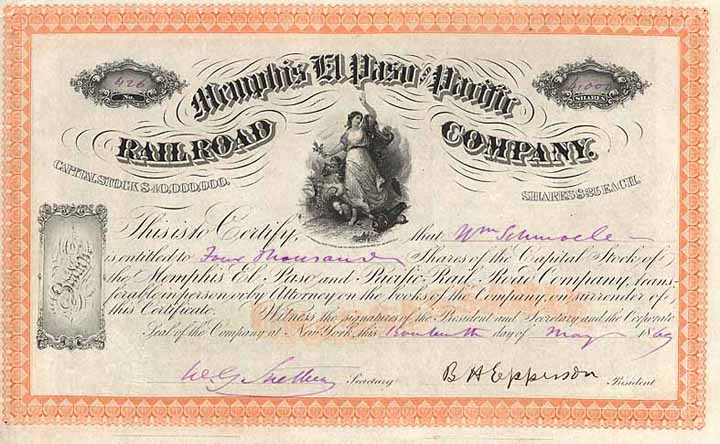 426
No.
4,000
SHARES
Memphis El Paso and Pacific
RAILROAD COMPANY.
CAPITAL STOCK $40,000,000.
SHARES $25 EACH.
This is to Certify, that Wm Schmoele
is entitled to Four Thousand Shares of the Capital Stock of
the Memphis El Paso and Pacific Rail Road Company, trans-
ferable in person or by Attorney on the books of the Company, on surrender of
this Certificate. Witness the signatures of the President and Secretary and the Corporate
Seal of the Company at New York, this day of May 1869
Secretary B H Epperson President